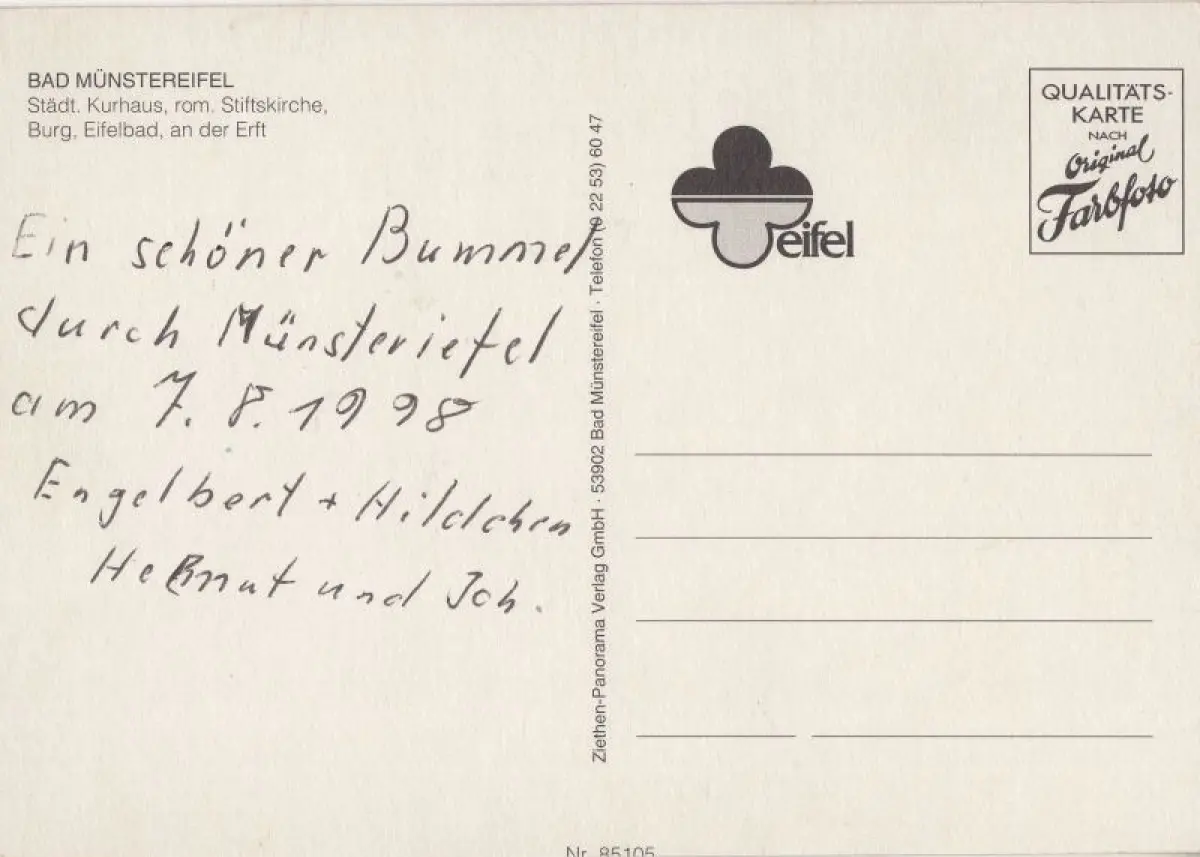 BAD MÜNSTEREIFEL
Städt. Kurhaus, rom. Stiftskirche,
Burg, Eifelbad, an der Erft
Ein schöner Bummel
durch Münsteriefel
am 7. 8. 1998
Engelbert + Hildchen
Helmut und Joh.
Ziethen-Panorama Verlag GmbH · 53902 Bad Münstereifel · Telefon (0 22 53) 60 47
eifel
QUALITÄTS-
KARTE
NACH
Original
Farbfoto
Nr. 85105